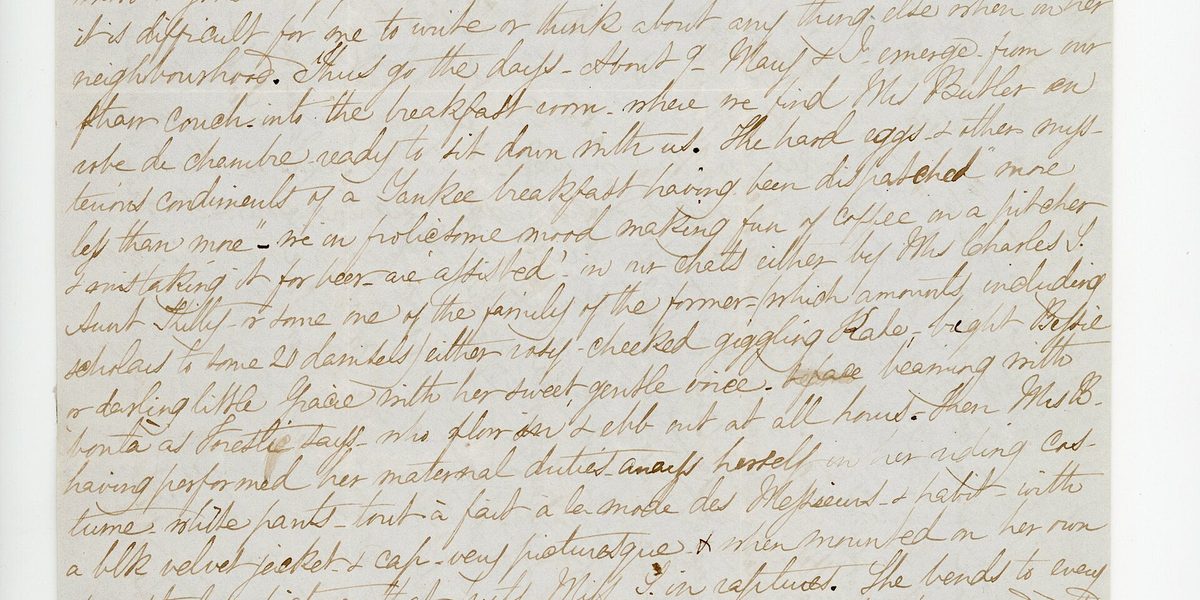 it is difficult for me to write or think about any thing else when in her
neighbourhood. Thus go the days - About 9 - Mary & I emerge from our
straw couch - into the breakfast room - where we find Mrs Butler en
robe de chambre ready to sit down with us. The hard eggs - & other mys-
terious condiments of a Yankee breakfast having been dispatched "more
less than more" - we in frolicsome mood making fun of coffee in a pitcher
& mistaking it for beer - are 'assisted' - in our chats either by Mrs Charles S.
Aunt Kitty - or some one of the family of the former - (which amounts, including
scholars to some 20 damsels) either rosy - cheeked giggling Kate, - bright Bessie
or darling little Gracie with her sweet, gentle voice - & face beaming with
bontà as Foresti says - who flow in & ebb out at all hours. - Then Mrs B -
having performed her maternal duties arrays herself in her riding cos-
tume - white pants - tout à fait à la mode des Messieurs - & habit - with
a blk velvet jacket & cap - very picturesque - & when mounted on her own
Miss S. in raptures. She bends to every